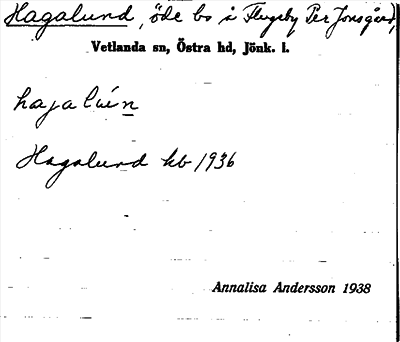 Hagalund, öde bs å Flugeby Per Jonsgård,
Vetlanda sn, Östra hd, Jönk. l.
Hagalund kb 1936
Annalisa Andersson 1938